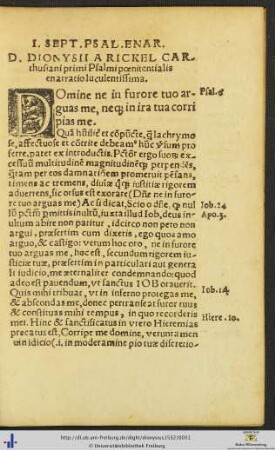 I. SEPT. PSAL. ENAR.
D. DIONYSII A RICKEL CAR-
thusiani primi Psalmi pœnitentialis
enarratio luculentissima.
Domine ne in furore tuo ar-
guas me, neq; in ira tua corri
pias me.
Psal. 6
se, affectuose et cõtrite debeam⁹ hũc
ferre, patet ex introductis.
cessuũ multitudinẽ
quãtam per eos damnatiõem promeruit
timens ac tremens, diuinæ iustitiæ rigorem
aduertens, sic orsus est exorare (Dñe ne in furo-
re tuo arguas me) Ac si dicat, Scio o dñe, q nul
lũ pctm̃ pmittis inultũ, iuxta illud Iob, deus in-
Iob. 24
ultum abire non patitur, idcirco non peto non
Apo. 3.
argui, præsertim cum dixeris, ego quos amo
arguo, & castigo: verum hoc oro, ne in furore
tuo arguas me, hoc est, secundum rigorem iu-
sticiæ tuæ, præsertim in particulari aut genera
li iudicio, me æternaliter condemnando: quod
adeo est pauendum, vt sanctus IOB orauerit.
Quis mihi tribuat, vt in inferno protegas me,
Iob. 14
& abscondas me, donec pertranseat furor tuus
& constituas mihi tempus, in quo recorderis
mei. Hinc & sanctificatus in vtero Hieremias
Hiere. 10.
precatus est, Corripe me domine, veruntamen
in iudicio (.i. in moderamine pio tuæ discretio-
© Universitätsbibliothek Freiburg